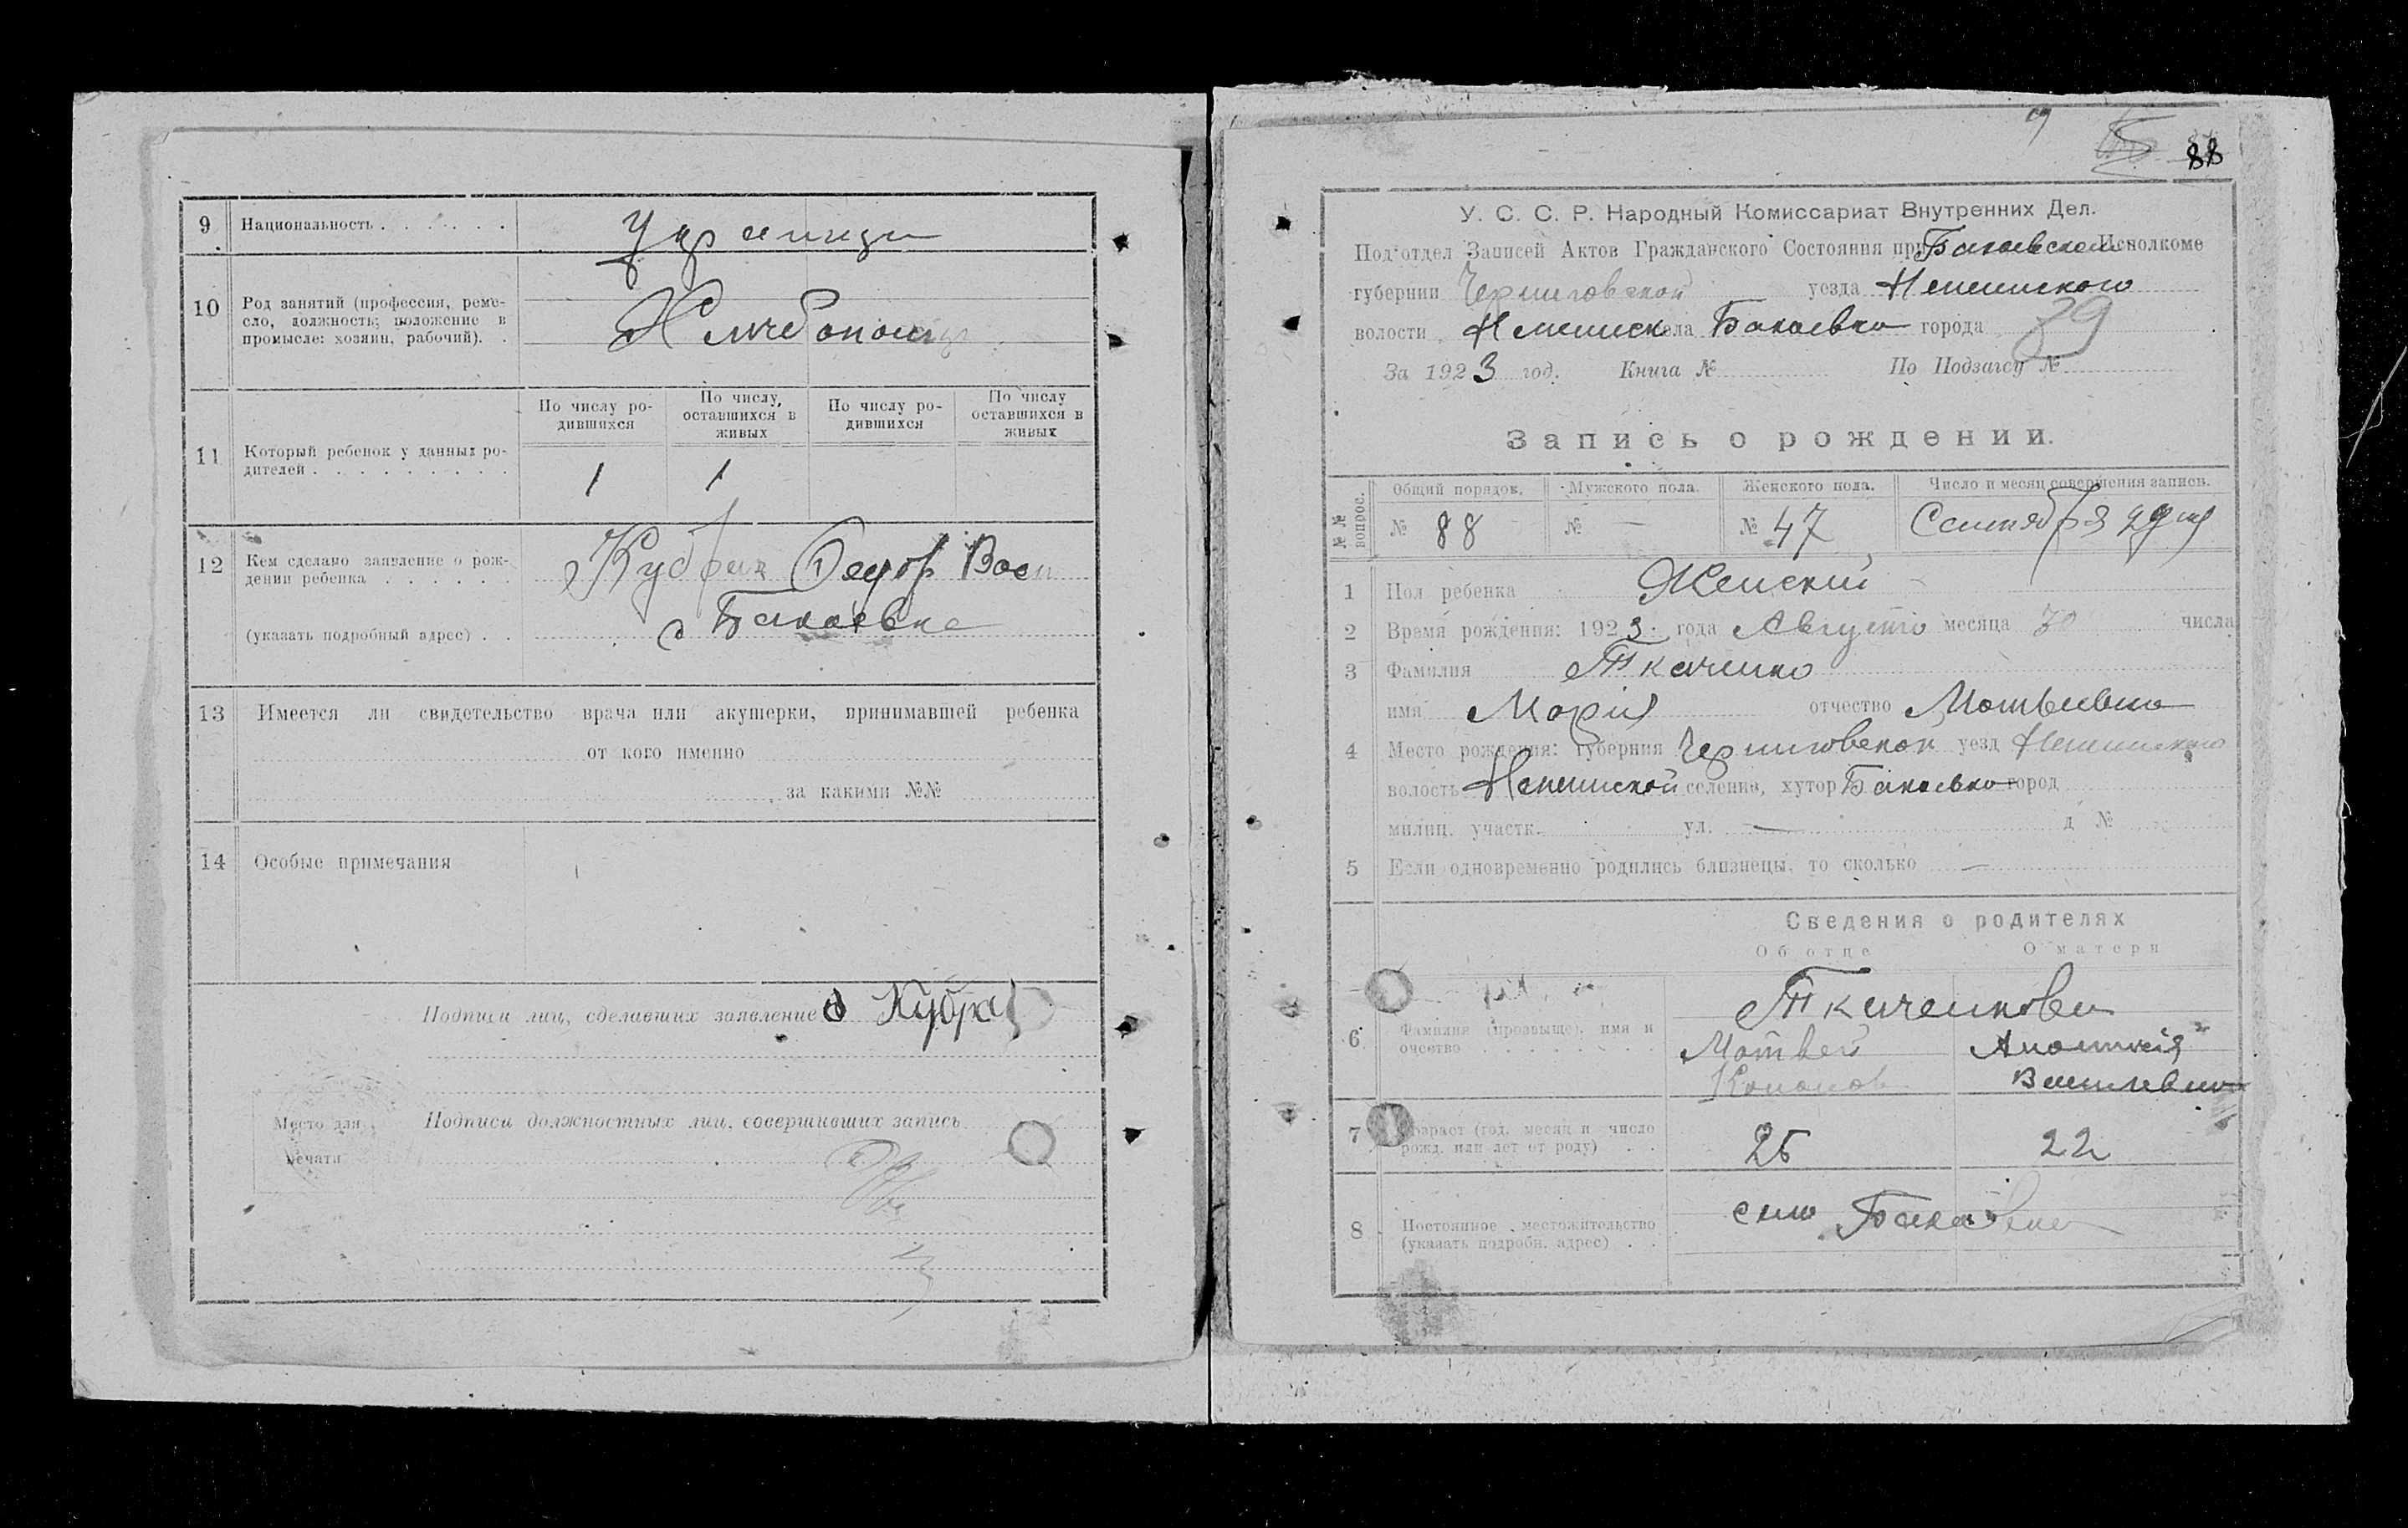 9 Национальность . . . . . . Украинцы
10 Род занятий (профессия, реме-
сло, должность; положение в
промысле: хозяин, рабочий). .
Хлебопашцы
По числу ро-
дившихся
По числу
оставшихся в
живых
По числу ро-
дившихся
По числу
оставшихся в
живых
11 Который ребенок у данных ро-
дителей . . . . . . . . .
1 1
12 Кем сделано заявление о рож-
дении ребенка . . . . . .
Кубрак Федор Вас
(указать подробный адрес) . . с Бакаевка
13 Имеется ли свидетельство врача или акушерки, принимавшей ребенка
от кого именно
за какими №№
14 Особые примечания
Подписи лиц, сделавших заявление Кубрак
Место для
печати
Подписи должностных лиц, совершивших запись
88
У. С. С. Р. Народный Комиссариат Внутренних Дел.
Под'отдел Записей Актов Гражданского Состояния при Бакаевском Исполкоме
губернии Черниговской уезда Нежинского
волости Нежинск села Бакаевка города
39
За 1923 год. Книга № По Подзагсу №
Запись о рождении.
№№ вопрос.
Общий порядок. Мужского пола. Женского пола. Число и месяц совершения запись.
№ 88 № — № 47 Сентября 29 дня
1 Пол ребенка Женский
2 Время рождения: 1923 года Августа месяца 30 числа
3 Фамилия Ткаченко
имя Мария отчество Матвеевна
4 Место рождения: губерния Черниговской уезд Нежинского
волость Нежинской селение, хутор Бакаевка город
милиц. участк. ул. — д №
5 Если одновременно родились близнецы, то сколько —
Сведения о родителях
Об отце О матери
6 Фамилия (прозвыще), имя и
очество . . . . . . . .
Ткаченкови
Матвей Анастасія
Кононов Васильевна
7 Возраст (год, месяц и число
рожд. или лет от роду) . .
25 22
8 Постоянное местожительство
(указать подробн. адрес) . .
село Бакаевка